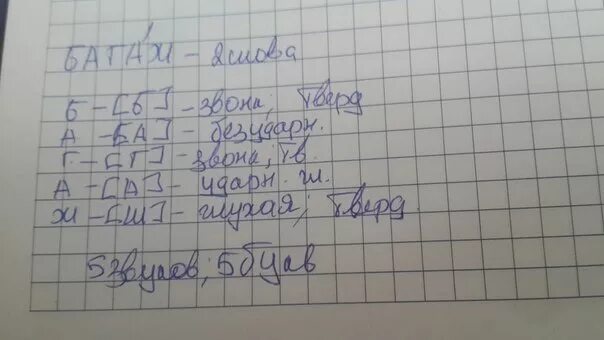 БАГА́Ж - 2 слова
Б - [Б] - звонк; Тверд
А - [А] - безударн.
Г - [Г] - звонк; Тв.
А - [А] - ударн. гл.
Ж - [Ш] - глухая; Тверд
5 звуков; 5 букв